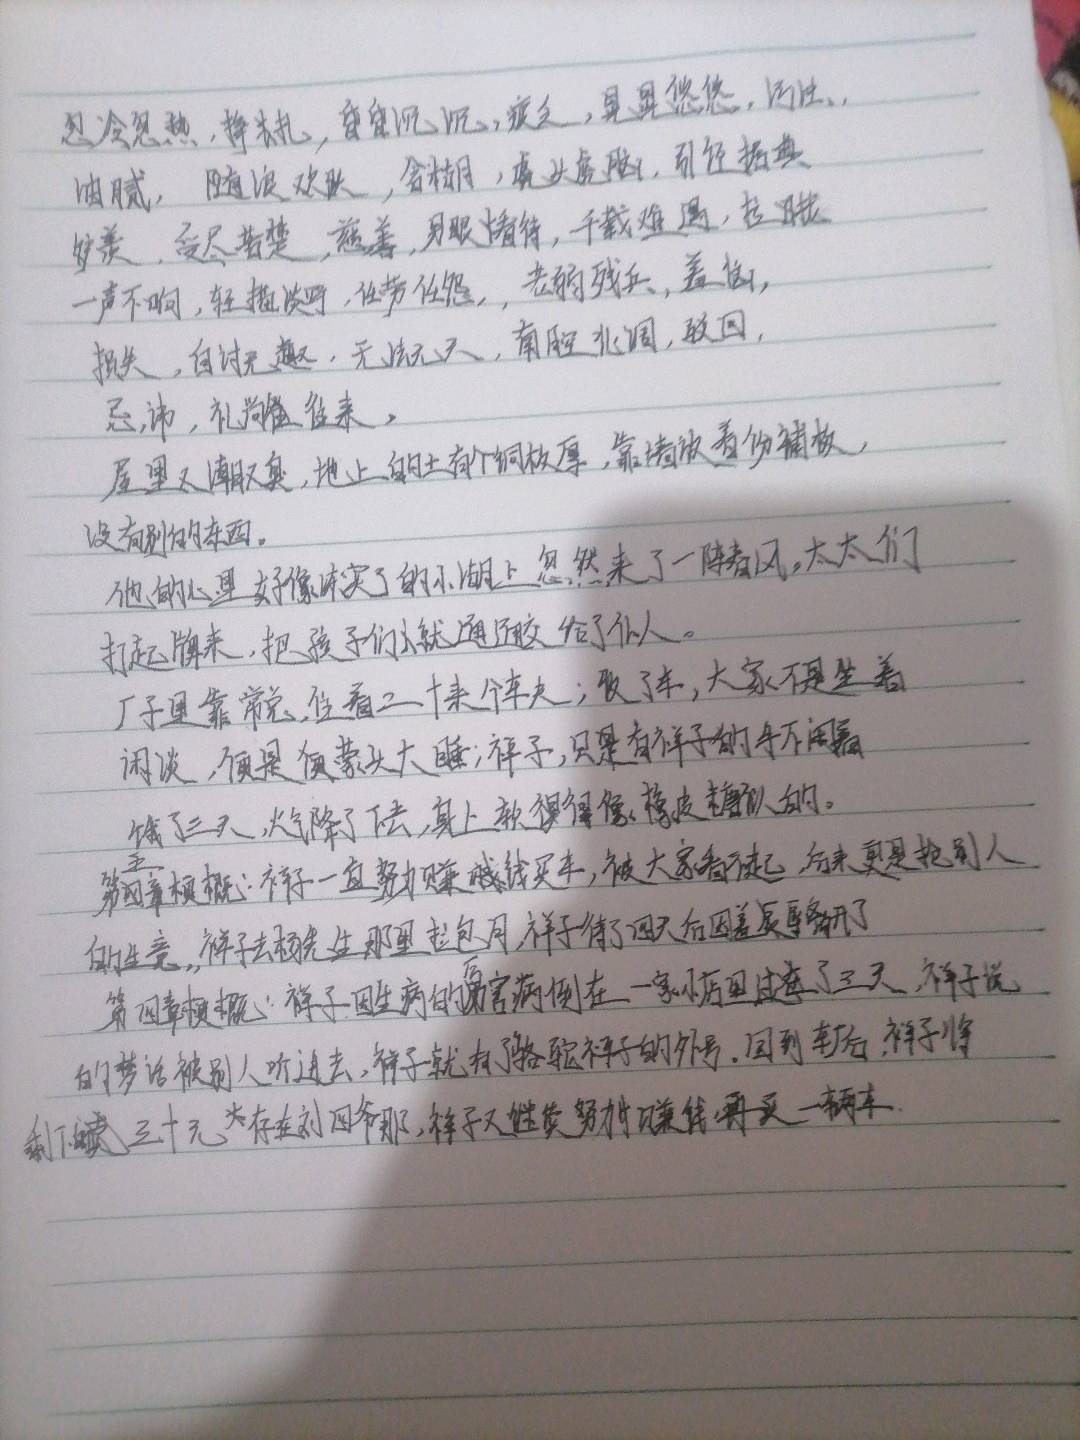 忽冷忽热，挣扎，昏昏沉沉，疲乏，晃晃悠悠，
油腻，随波欢跃，含糊，虎头虎脑，引经据典
岁羡，受尽苦楚，慈善，另眼看待，千载难遇，
一声不响，轻描淡写，任劳任怨，老弱残兵，羞愧，
损失，自讨无趣，无法无天，南腔北调，驳回，
忌讳，礼尚往来。
屋里又潮又臭，地上的土有个铜板厚，靠墙放着份铺板，
没有别的东西。
他的心里好像冻实了的小湖上忽然来了一阵春风。太太们
打起牌来，把孩子们就通通交给了仆人。
厂子里靠常总住着二十来个车夫；收了车，大家不是坐着
闲谈，便是便蒙头大睡；祥子，只是有祥子的手不闲着
饿了三天，火气降了下去，身上软得像橡皮糖似的。
第五章梗概：祥子一直努力赚钱买车，被大家看不起，后来更是抢别人
的生意，祥子去杨先生那里拉包月，祥子待了四天后因羞辱离开了
第四章梗概：祥子因生病的厉害病倒在一家小店里过了三天，祥子说
的梦话被别人听进去，祥子就有了骆驼祥子的外号。回到车厂后，祥子将
剩下的三十元存在刘四爷那，祥子又继续努力赚钱再买一辆车.